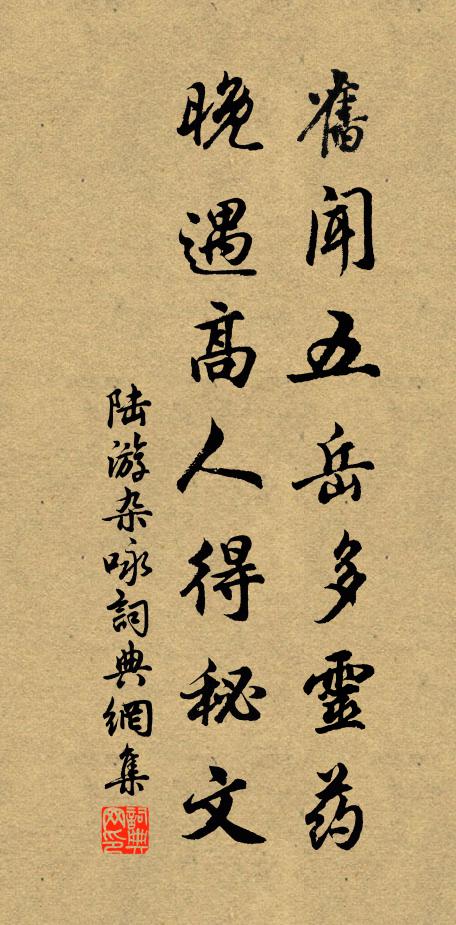 舊聞五岳多靈药
晚遇高人得秘文
陆游杂咏詞典網集
詞典網印